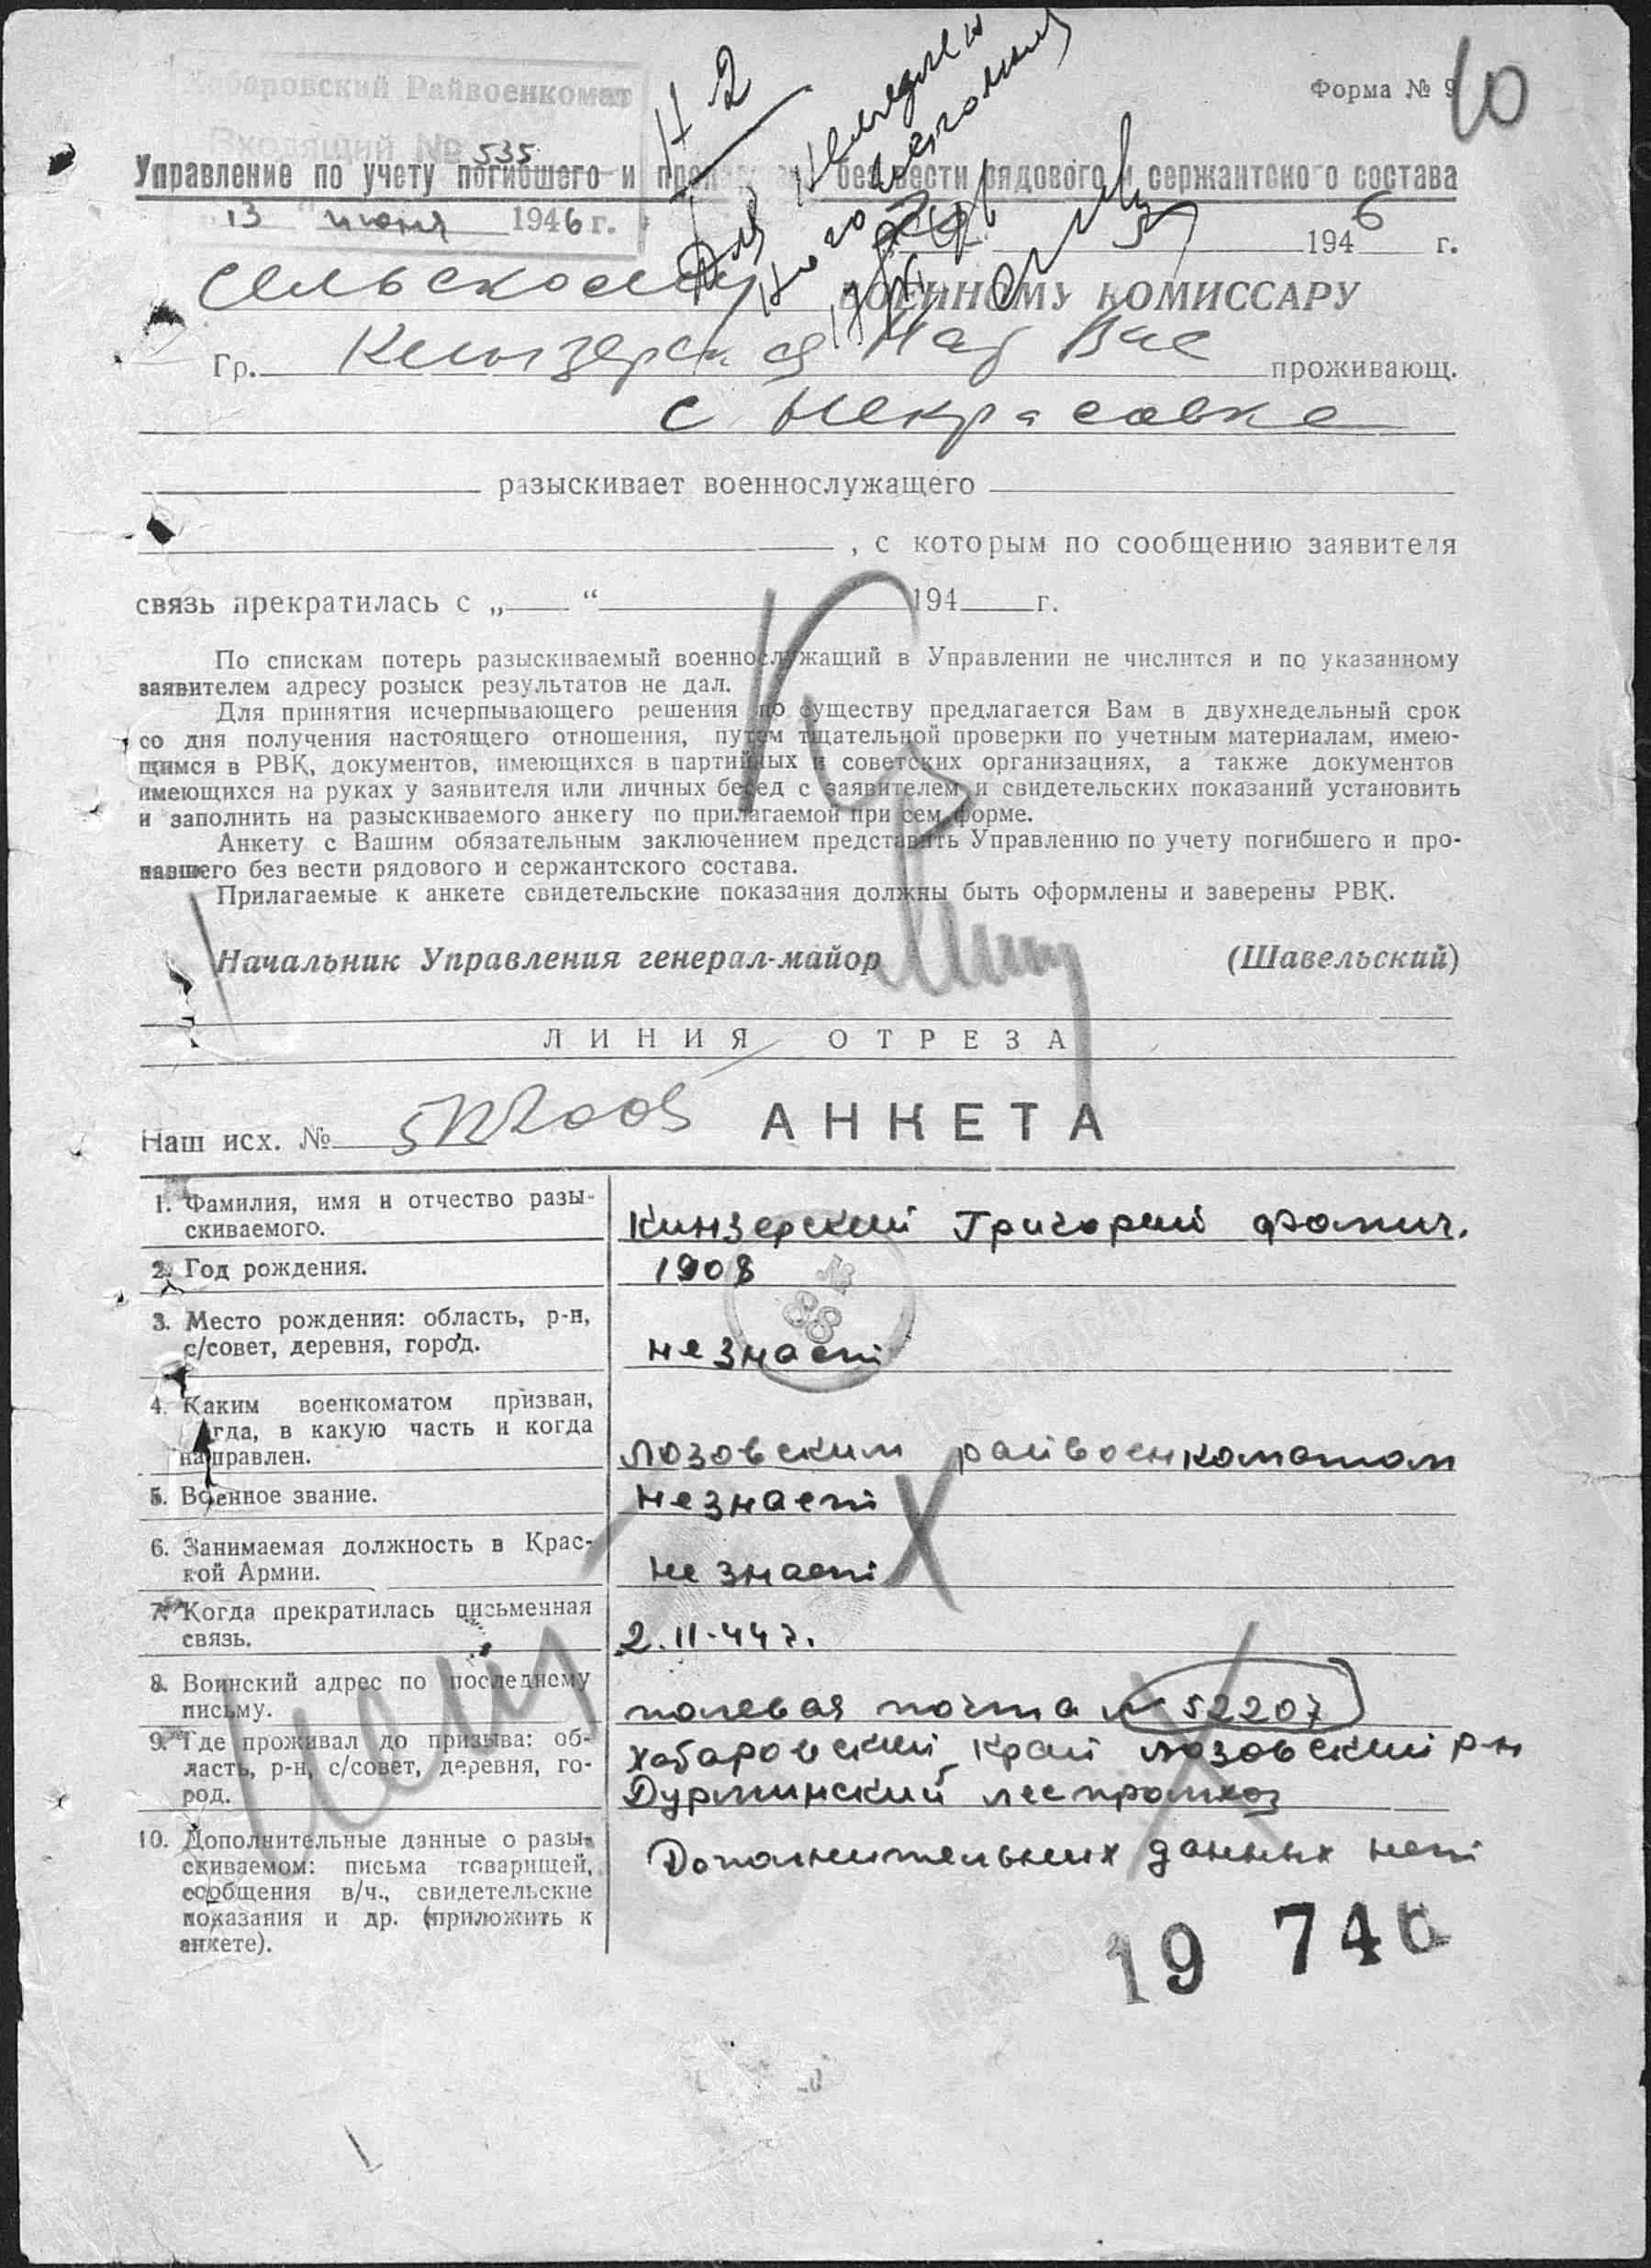 Форма № 9
10
Хабаровский Райвоенкомат
Входящий № 535
Н 2
Управление по учету погибшего и без вести рядового и сержантского состава
13 " июня 1946 г.
1946 г.
Сельскому ВОЕННОМУ КОМИССАРУ
Гр. проживающ.
с Некрасовке
разыскивает военнослужащего
, с которым по сообщению заявителя
связь прекратилась с „ “ 194 г.
По спискам потерь разыскиваемый военнослужащий в Управлении не числится и по указанному
заявителем адресу розыск результатов не дал.
Для принятия исчерпывающего решения по существу предлагается Вам в двухнедельный срок
со дня получения настоящего отношения, путем тщательной проверки по учетным материалам, имею-
щимся в РВК, документов, имеющихся в партийных и советских организациях, а также документов
имеющихся на руках у заявителя или личных бесед с заявителем и свидетельских показаний установить
и заполнить на разыскиваемого анкету по прилагаемой при сем форме.
Анкету с Вашим обязательным заключением представить Управлению по учету погибшего и про-
павшего без вести рядового и сержантского состава.
Прилагаемые к анкете свидетельские показания должны быть оформлены и заверены РВК.
Начальник Управления генерал-майор (Шавельский)
ЛИНИЯ ОТРЕЗА
Наш исх. № АНКЕТА
1. Фамилия, имя и отчество разы-
скиваемого.
Кинзерский Григорий Фомич.
2. Год рождения.
1908
3. Место рождения: область, р-н,
с/совет, деревня, город.
не знает
4. Каким военкоматом призван,
когда, в какую часть и когда
направлен.
Лозовским райвоенкоматом
5. Военное звание.
не знает
6. Занимаемая должность в Крас-
кой Армии.
не знает
7. Когда прекратилась письменная
связь.
2.II-44 г.
8. Воинский адрес по последнему
письму.
полевая почта № 52207
9. Где проживал до призыва: об-
ласть, р-н, с/совет, деревня, го-
род.
Хабаровский край Лозовский р-н
Дурминский леспромхоз
10. Дополнительные данные о разы-
скиваемом: письма товарищей,
сообщения в/ч., свидетельские
показания и др. (приложить к
анкете).
Дополнительных данных нет
19 746